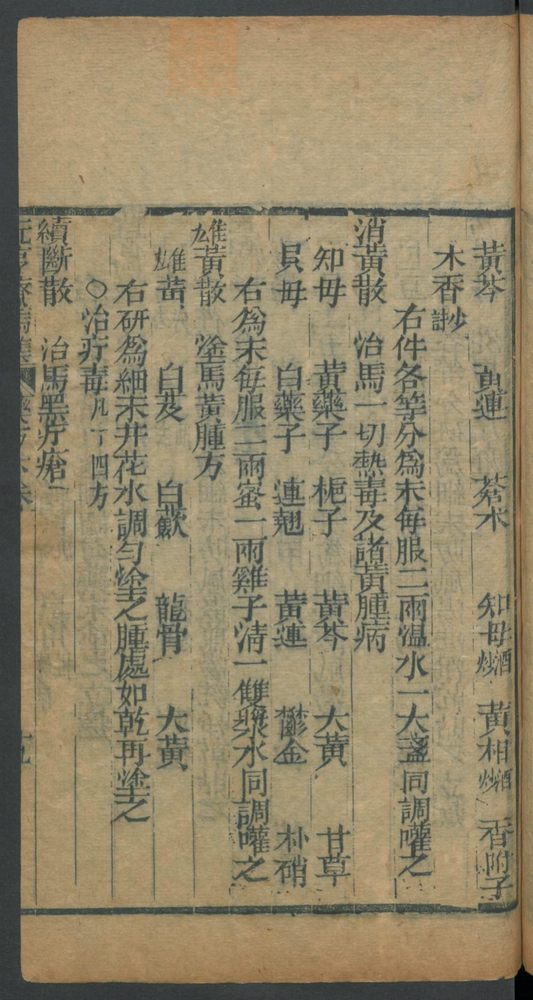 黄芩 黄連 蒼朮 知母酒炒 黄栢酒炒 香附子
木香炒
右件各等分爲末每服二兩温水一大盞同調嚾之
消黄散 治馬一切熱毒及諸黄腫病
知毋 黄藥子 梔子 黄芩 大黄 甘草
貝毋 白藥子 連翹 黄連 鬱金 朴硝
右爲末每服二兩蜜一兩雞子清一雙漿水同調嚾之
雄黄散 塗馬黄腫方
雄黄 白芨 白蘞 龍骨 大黄
右研爲細末井花水調勻塗之腫處如乾再塗之
○治疔毒凡一十四方
續斷散 治馬黑疔瘡